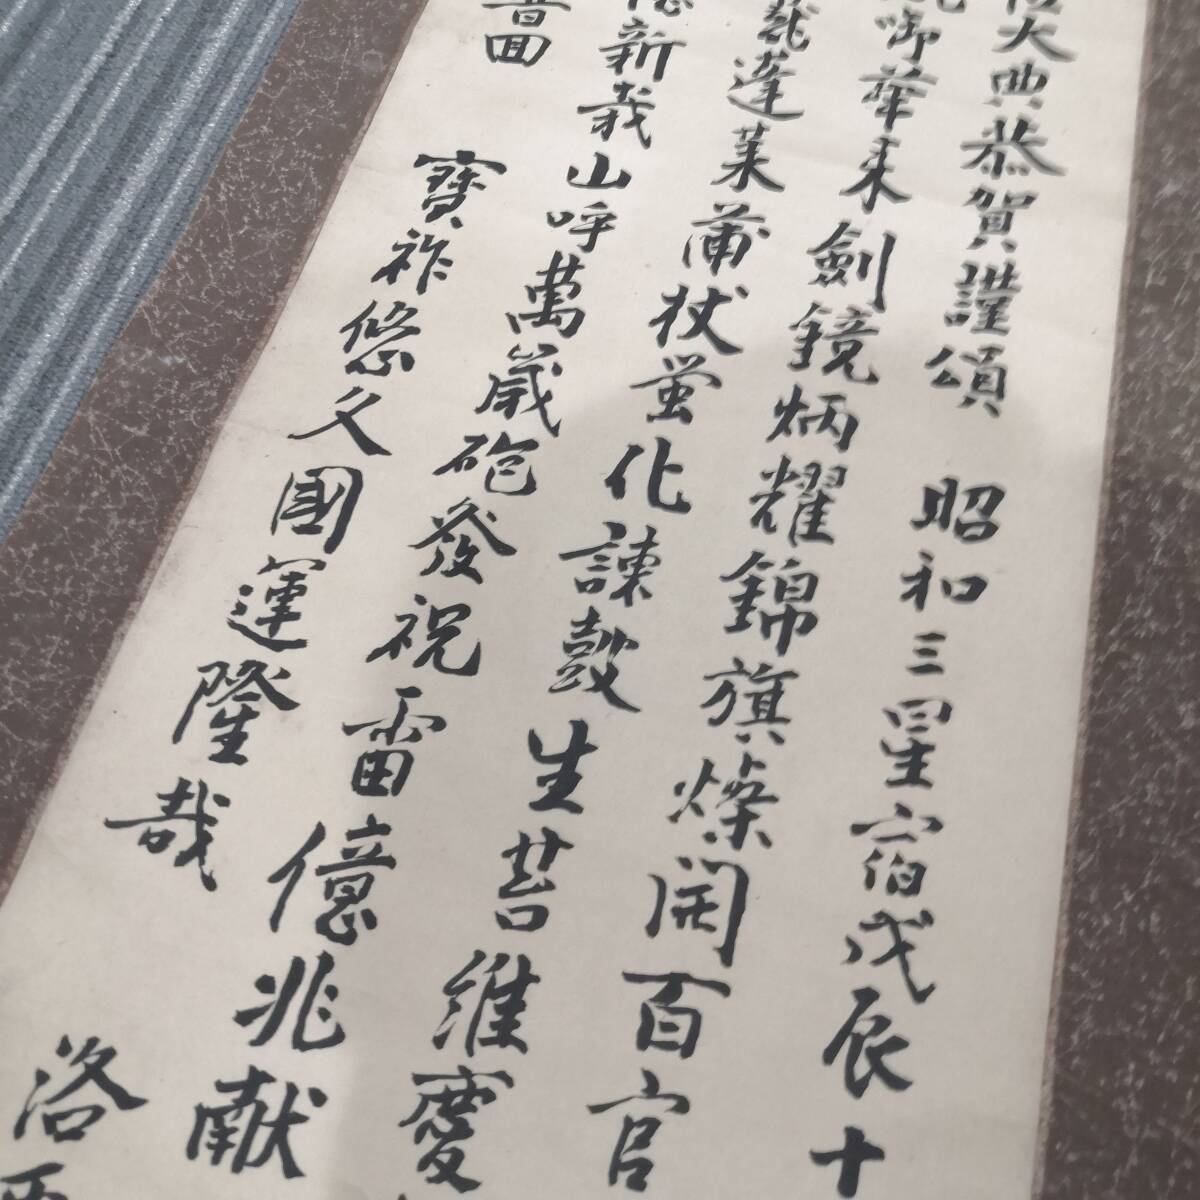 大典恭賀謹頌 昭和三星宿戊辰十
御華来劍鏡炳耀錦旗燦開百官
蓬莱蒲杖蛍化諌鼓生苔維慶
新哉山呼萬歳砲發祝雷億兆献
寶祚悠久國運隆哉
洛